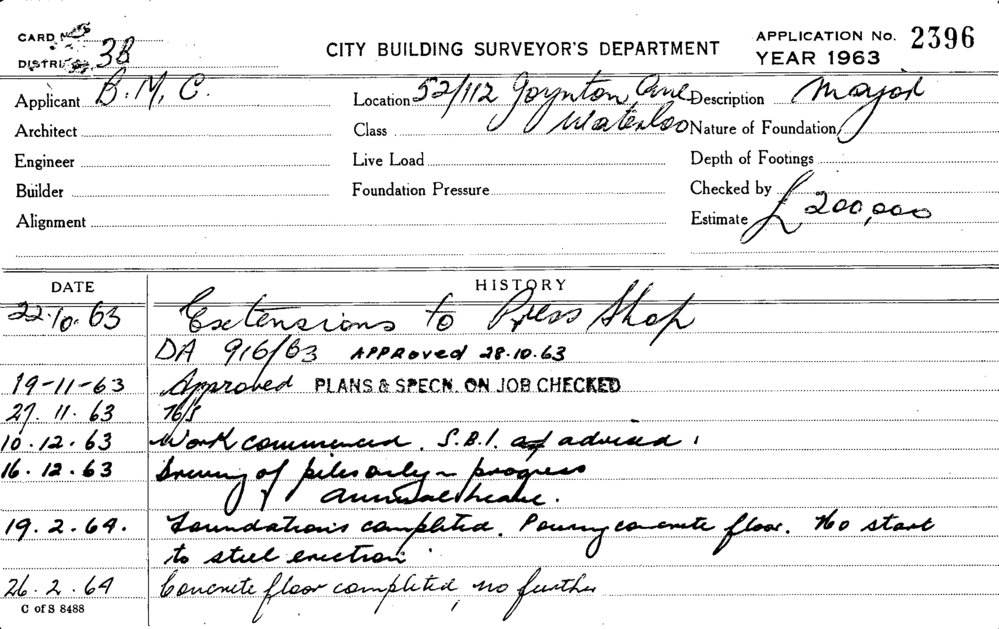 CARD No.
DISTRICT 38
CITY BUILDING SURVEYOR'S DEPARTMENT
APPLICATION No. 2396
YEAR 1963
Applicant B. M. C.
Location 52/112 Joynton Ave
Waterloo
Description Major
Architect
Class
Nature of Foundation
Engineer
Live Load
Depth of Footings
Builder
Foundation Pressure
Checked by
Alignment
Estimate £ 200,000
DATE HISTORY
22.10.63 Extensions to Press Shop
DA 916/63 APPROVED 28.10.63
19-11-63 Approved PLANS & SPECN. ON JOB CHECKED
27.11.63 N/S
10.12.63 Work commenced. S.B.I. advised.
16.12.63 of piles only in progress
Annual leave.
19.2.64. Foundations completed. Pouring concrete floor. No start
to steel erection
26.2.64 Concrete floor completed, no further
C of S 8488